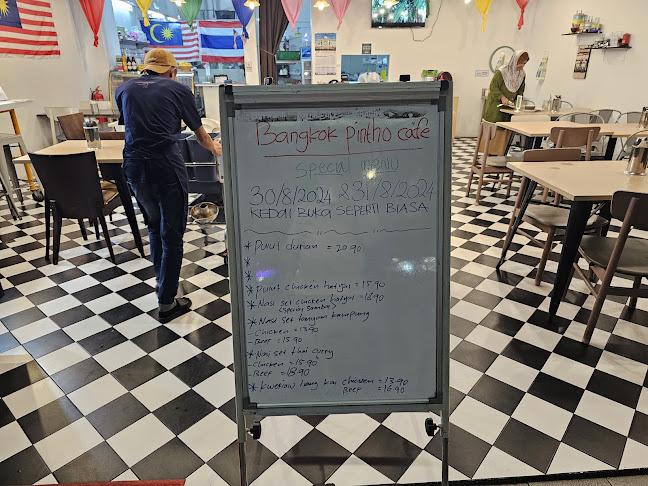 Bangkok pintho cafe
Special menu
30/8/2024 & 31/8/2024
KEDAI BUKA SEPERTI BIASA
* Pulut durian = 20.90
*
*
* Pulut chicken hatyai = 15.90
* Nasi set chicken hatyai = 18.90
(special sambal)
* Nasi set kampung
- Chicken = 13.90
- Beef = 15.90
* Nasi set thai curry
- Chicken = 15.90
- Beef = 18.90
* Kwetiaw hong kai chicken = 13.90
Beef = 16.90